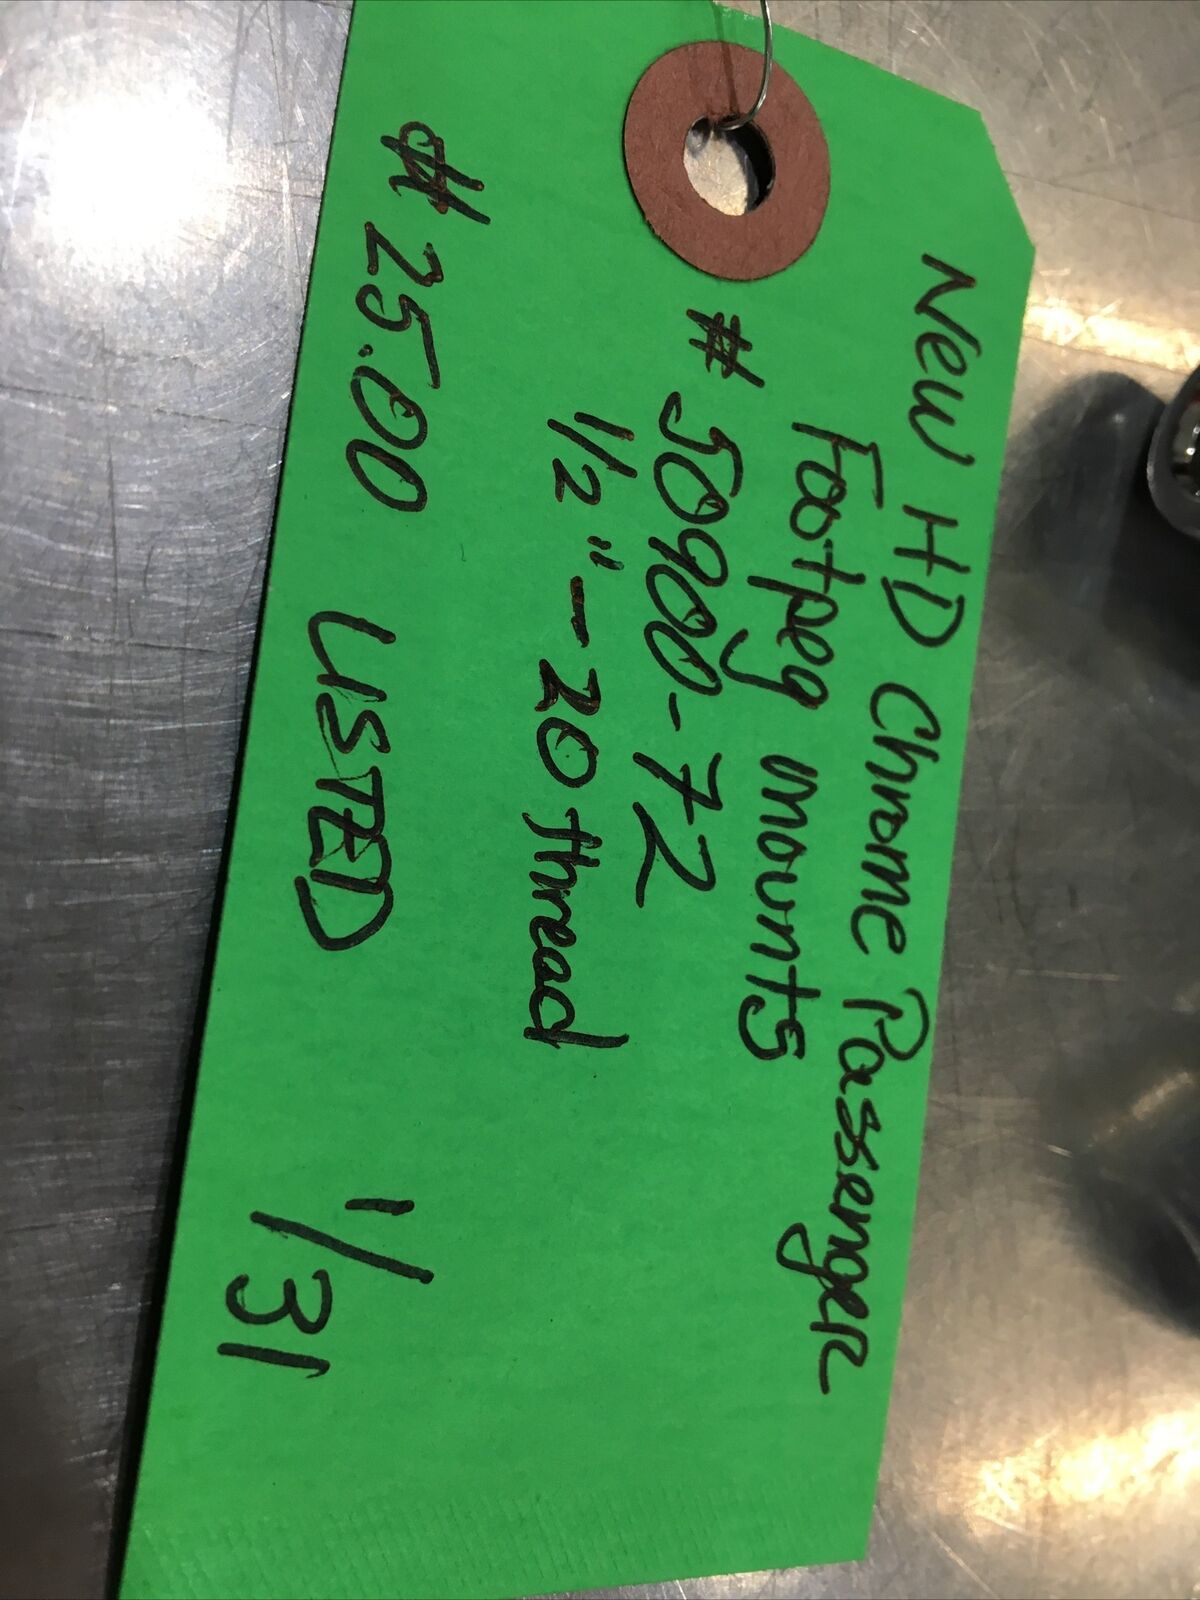 New HD Chrome Passenger
Footpeg mounts
# 50900-72
1/2" - 20 thread
$25.00 USTED 1/31